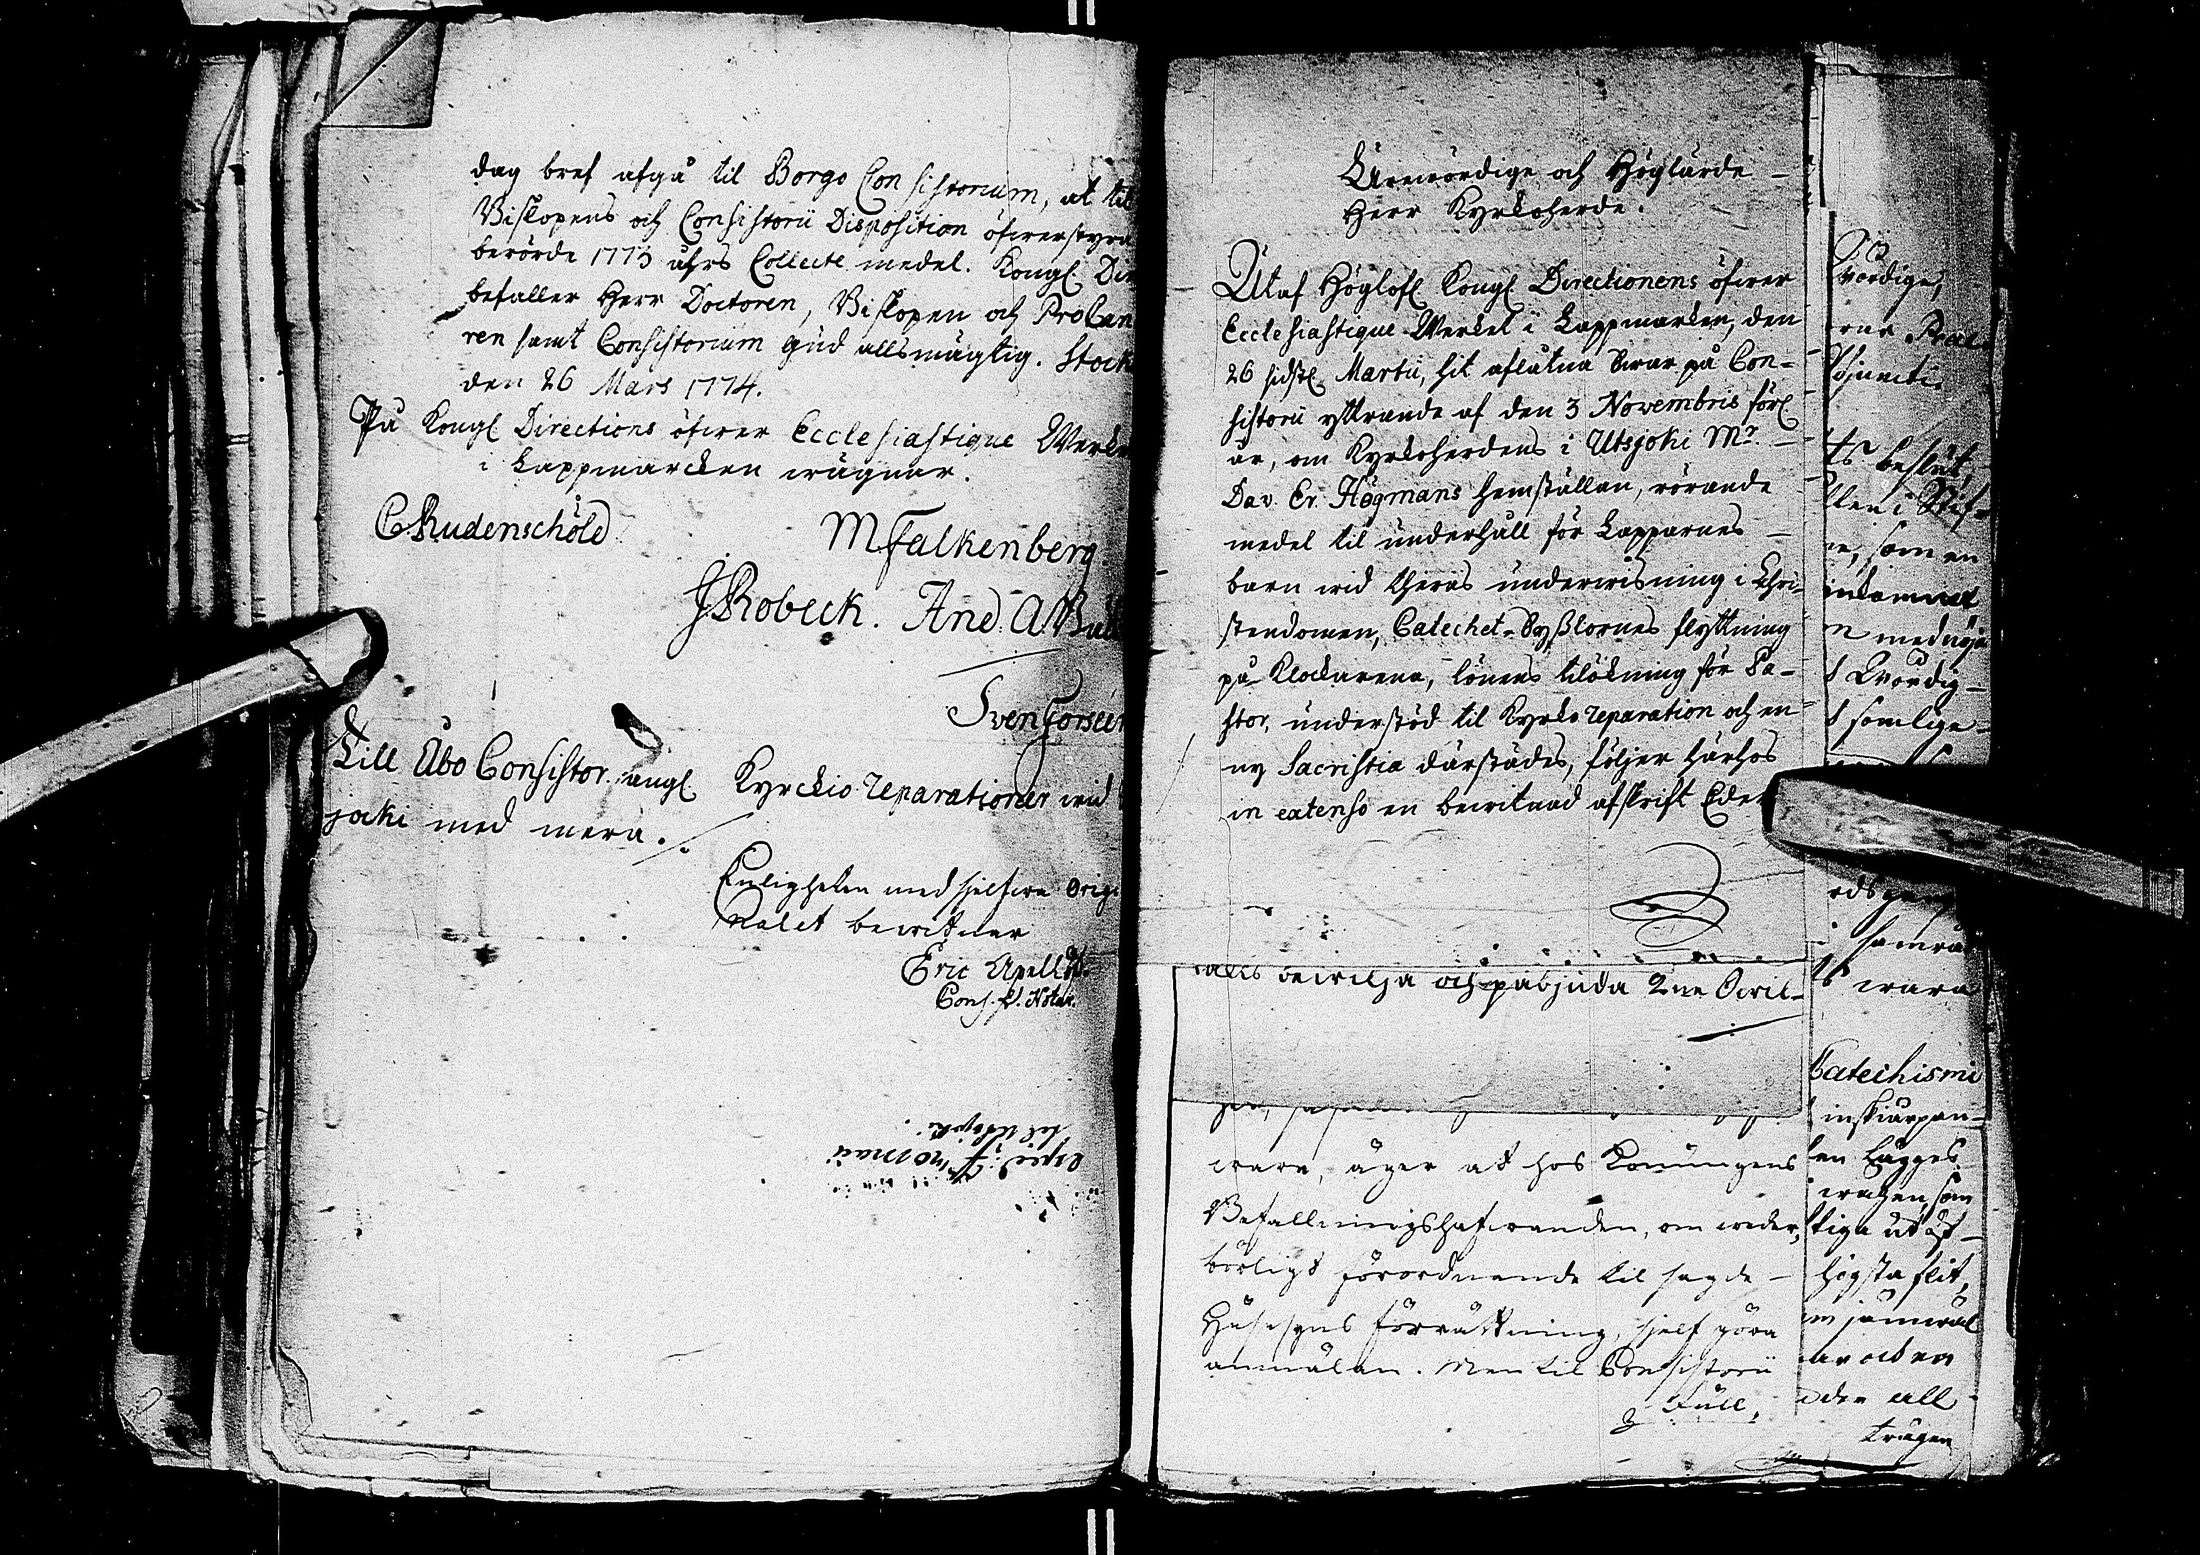 dag bref afgå til Borgo Consistorium, at til
Biskopens och Consistorii Disposition öfwerstyra
berörde 1773 åhrs Collecte medel. Kongl. Dir
befaller Herr Doctoren, Biskopen och ProCan
ren samt Consistorium Gud allsmägtig. Stock
den 26 Mars 1774.
På Kongl. Directions öfwer Ecclesiastique Werke
i Lappmarcken wägnar.
C Rudenschöld
M Falkenberg.
J Robeck. And. A. Bal
Sven Forseen
Till Åbo Consistor. angl. Kyrckio reparationer wid
jocki med mera ./.
Enligheten med sjelfwa Origi
nalet bewittnar
Eric Apell
Cons. Notar.
Ärewördige och Höglärde
Herr Kyrkoherde.
Utaf Höglofl. Kongl. Directionens öfwer
Ecclesiastique Werket i Lappmarken, den
26 sidstl. Martii, hit aflåtna swar på Con-
sistorii yttrande af den 3 Novembris förl.
år, om Kyrkoherdens i Utsjoki Mr.
Dav. Er. Högmans hemställan, rörande
medel til underhåll för Lapparnes
barn wid theras underwisning i Chri-
stendomen, Catechet-Sysslornes flyttning
på Klockarena, lönens tilökning för Pa-
stor, understöd til Kyrko reparation och en
ny Sacristia därstädes, följer härhos
in extenso en bewitnad afskrift Eder
bewilja och påbjuda 2ne
wara, äger at hos Konungens
Befallningshafwanden, om weder-
börligt förordnande til sagde
Husesyns förrättning, sjelf göra
anmälan. Men til Consistorii
wördige,
Adjuncti
ts beslut
llen i Stif-
n, som en
inkommet
n medwja
t Wördig-
samlige
samra
ts wara
Catechismi
inskärpan-
en Lägges
wagen, som
tiga ut
högsta flit,
m jämwäl
ar och en
der all
trägen